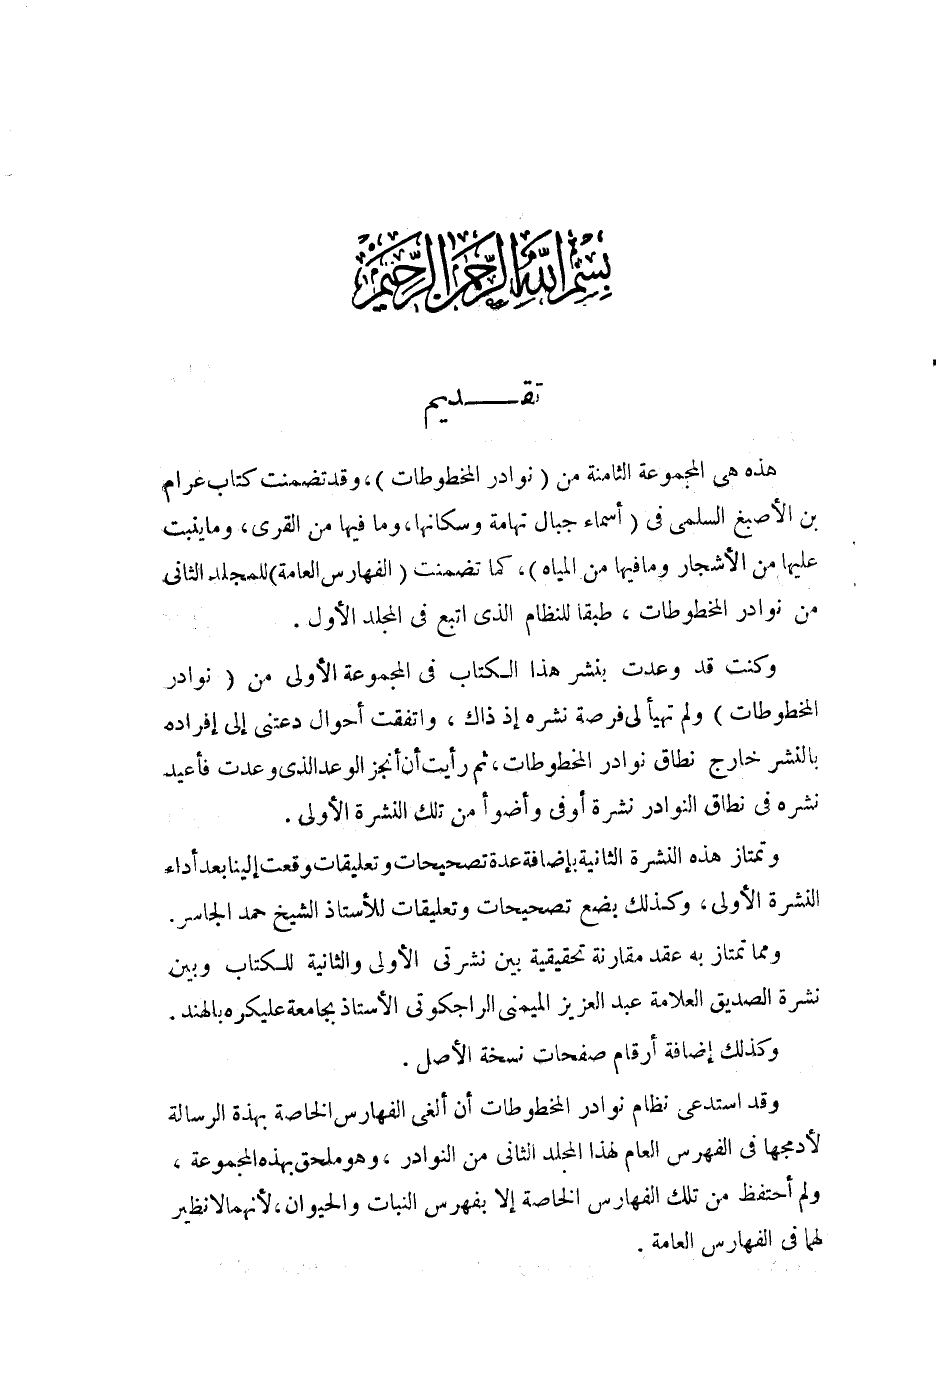 بسم الله الرحمن الرحيم
تقـــــديم
هذه هى المجموعة الثامنة من ( نوادر المخطوطات ) ، وقد تضمنت كتاب عرام
بن الأصبغ السلمى فى ( أسماء جبال تهامة وسكانها ، وما فيها من القرى ، وما ينبت
عليها من الأشجار وما فيها من المياه ) ، كما تضمنت ( الفهارس العامة ) للمجلد الثانى
من نوادر المخطوطات ، طبقا للنظام الذى اتبع فى المجلد الأول .
وكنت قد وعدت بنشر هذا الكتاب فى المجموعة الأولى من ( نوادر
المخطوطات ) ولم تهيأ لى فرصة نشره إذ ذاك ، واتفقت أحوال دعتنى إلى إفراده
بالنشر خارج نطاق نوادر المخطوطات ، ثم رأيت أن أنجز الوعد الذى وعدت فأعيد
نشره فى نطاق النوادر نشرة أوفى وأضوأ من تلك النشرة الأولى .
وتمتاز هذه النشرة الثانية بإضافة عدة تصحيحات وتعليقات وقعت إلينا بعد أداء
النشرة الأولى ، وكذلك بضع تصحيحات وتعليقات للأستاذ الشيخ حمد الجاسر .
ومما تمتاز به عقد مقارنة تحقيقية بين نشرتى الأولى والثانية للكتاب وبين
نشرة الصديق العلامة عبد العزيز الميمنى الراجكوتى الأستاذ بجامعة عليكره بالهند .
وكذلك إضافة أرقام صفحات نسخة الأصل .
وقد استدعى نظام نوادر المخطوطات أن ألغى الفهارس الخاصة بهذة الرسالة
لأدمجها فى الفهرس العام لهذا المجلد الثانى من النوادر ، وهو ملحق بهذه المجموعة ،
ولم أحتفظ من تلك الفهارس الخاصة إلا بفهرس النبات والحيوان ، لأنهما لا نظير
لهما فى الفهارس العامة .